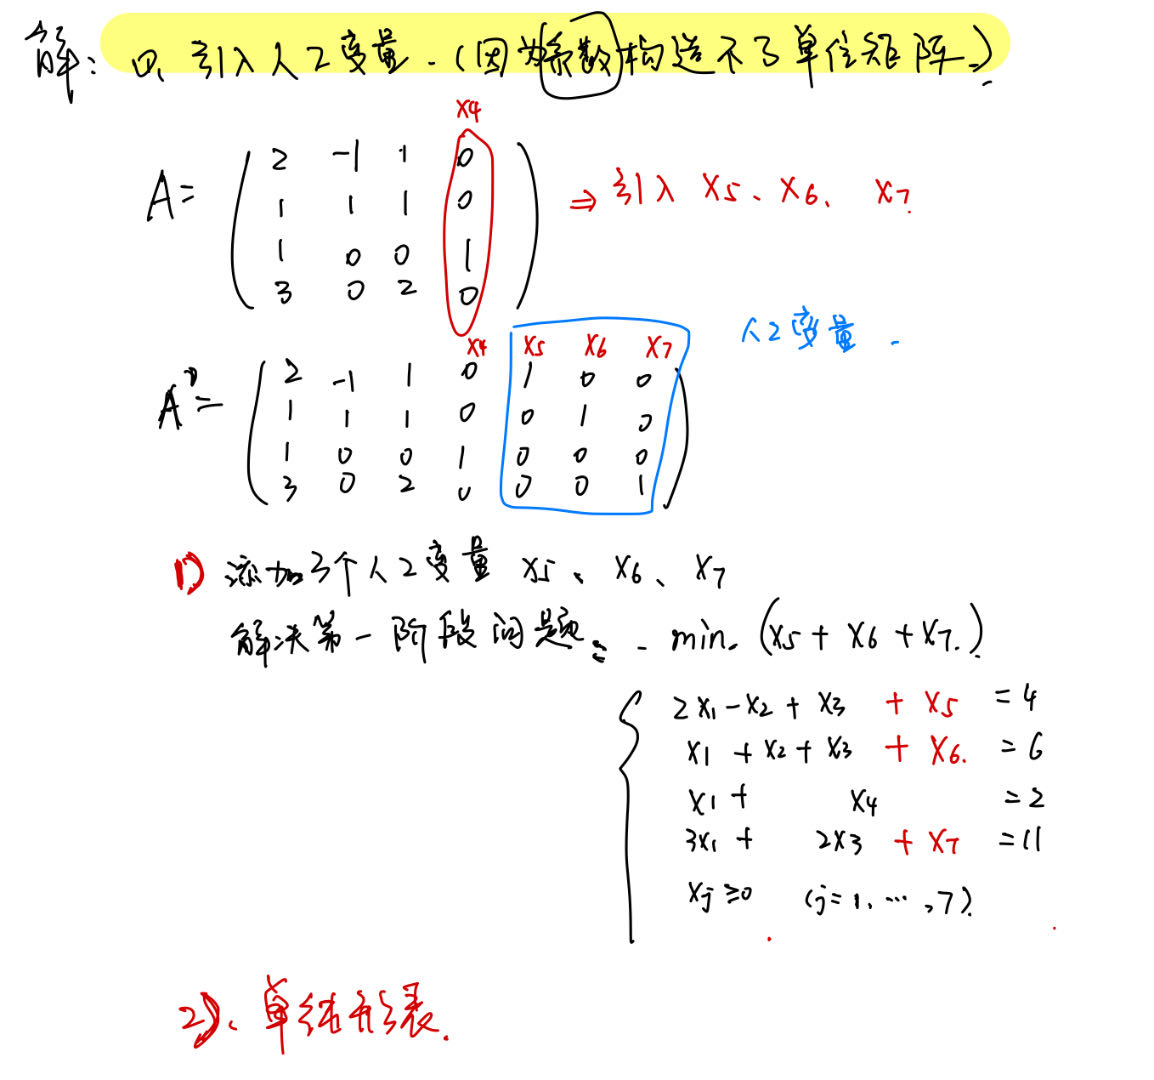 解: (1)、引入人工变量.(因为系数构造不了单位矩阵.)
x4
A= ( 2 -1 1 0
1 1 1 0
1 0 0 1
3 0 2 0 ) ⇒ 引入 x5、x6、x7.
人工变量.
x4 x5 x6 x7
A = ( 2 -1 1 0 1 0 0
1 1 1 0 0 1 0
1 0 0 1 0 0 0
3 0 2 0 0 0 1 )
1) 添加3个人工变量 x5、x6、x7
解决第一阶段问题: min. (x5 + x6 + x7.)
2x1 - x2 + x3 + x5 = 4
x1 + x2 + x3 + x6. = 6
x1 + x4 = 2
3x1 + 2x3 + x7 = 11
xj ≥ 0 (j = 1, ⋯, 7).
2)、单纯形表.